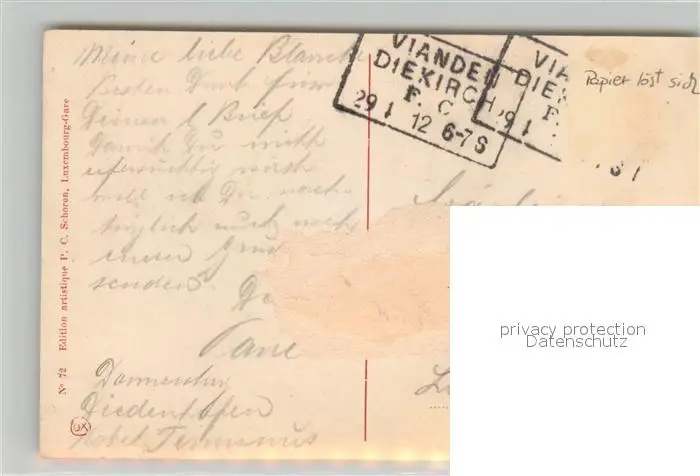 Meine liebe Blanche
Besten Dank für
Deinen l Brief
Damit Du nicht
eifersüchtig wirst
will ich Dir nach-
träglich auch noch
einen Gruß
senden.
Donnerstag
Diedenhofen
Hotel Terminus
VIANDEN
DIEKIRCH
F. C.
29 1 12 6-7 S
VIA
DIE
F.
29 1
Papier löst sich
Nº 72 Edition artistique P. C. Schoren, Luxembourg-Gare
privacy protection
Datenschutz